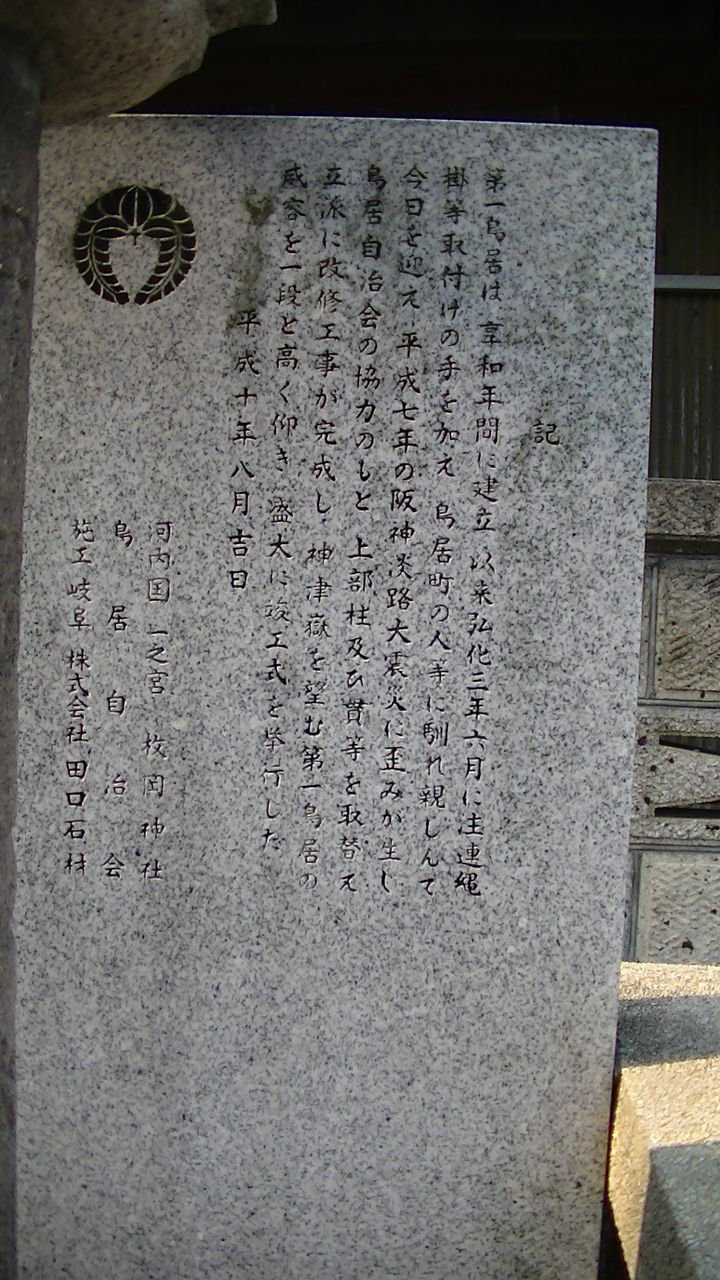 記
第一鳥居は 享和年間に建立 以来弘化三年六月に注連縄
掛等取付けの手を加え 鳥居町の人等に馴れ親しんで
今日を迎え 平成七年の阪神淡路大震災に歪みが生し
鳥居自治会の協力のもと 上部柱及ひ貫等を取替え
立派に改修工事が完成し 神津嶽を望む第一鳥居の
威容を一段と高く仰き 盛大に竣工式を挙行した
平成十年八月吉日
河内国一之宮 枚岡神社
鳥居自治会
施工岐阜 株式会社 田口石材